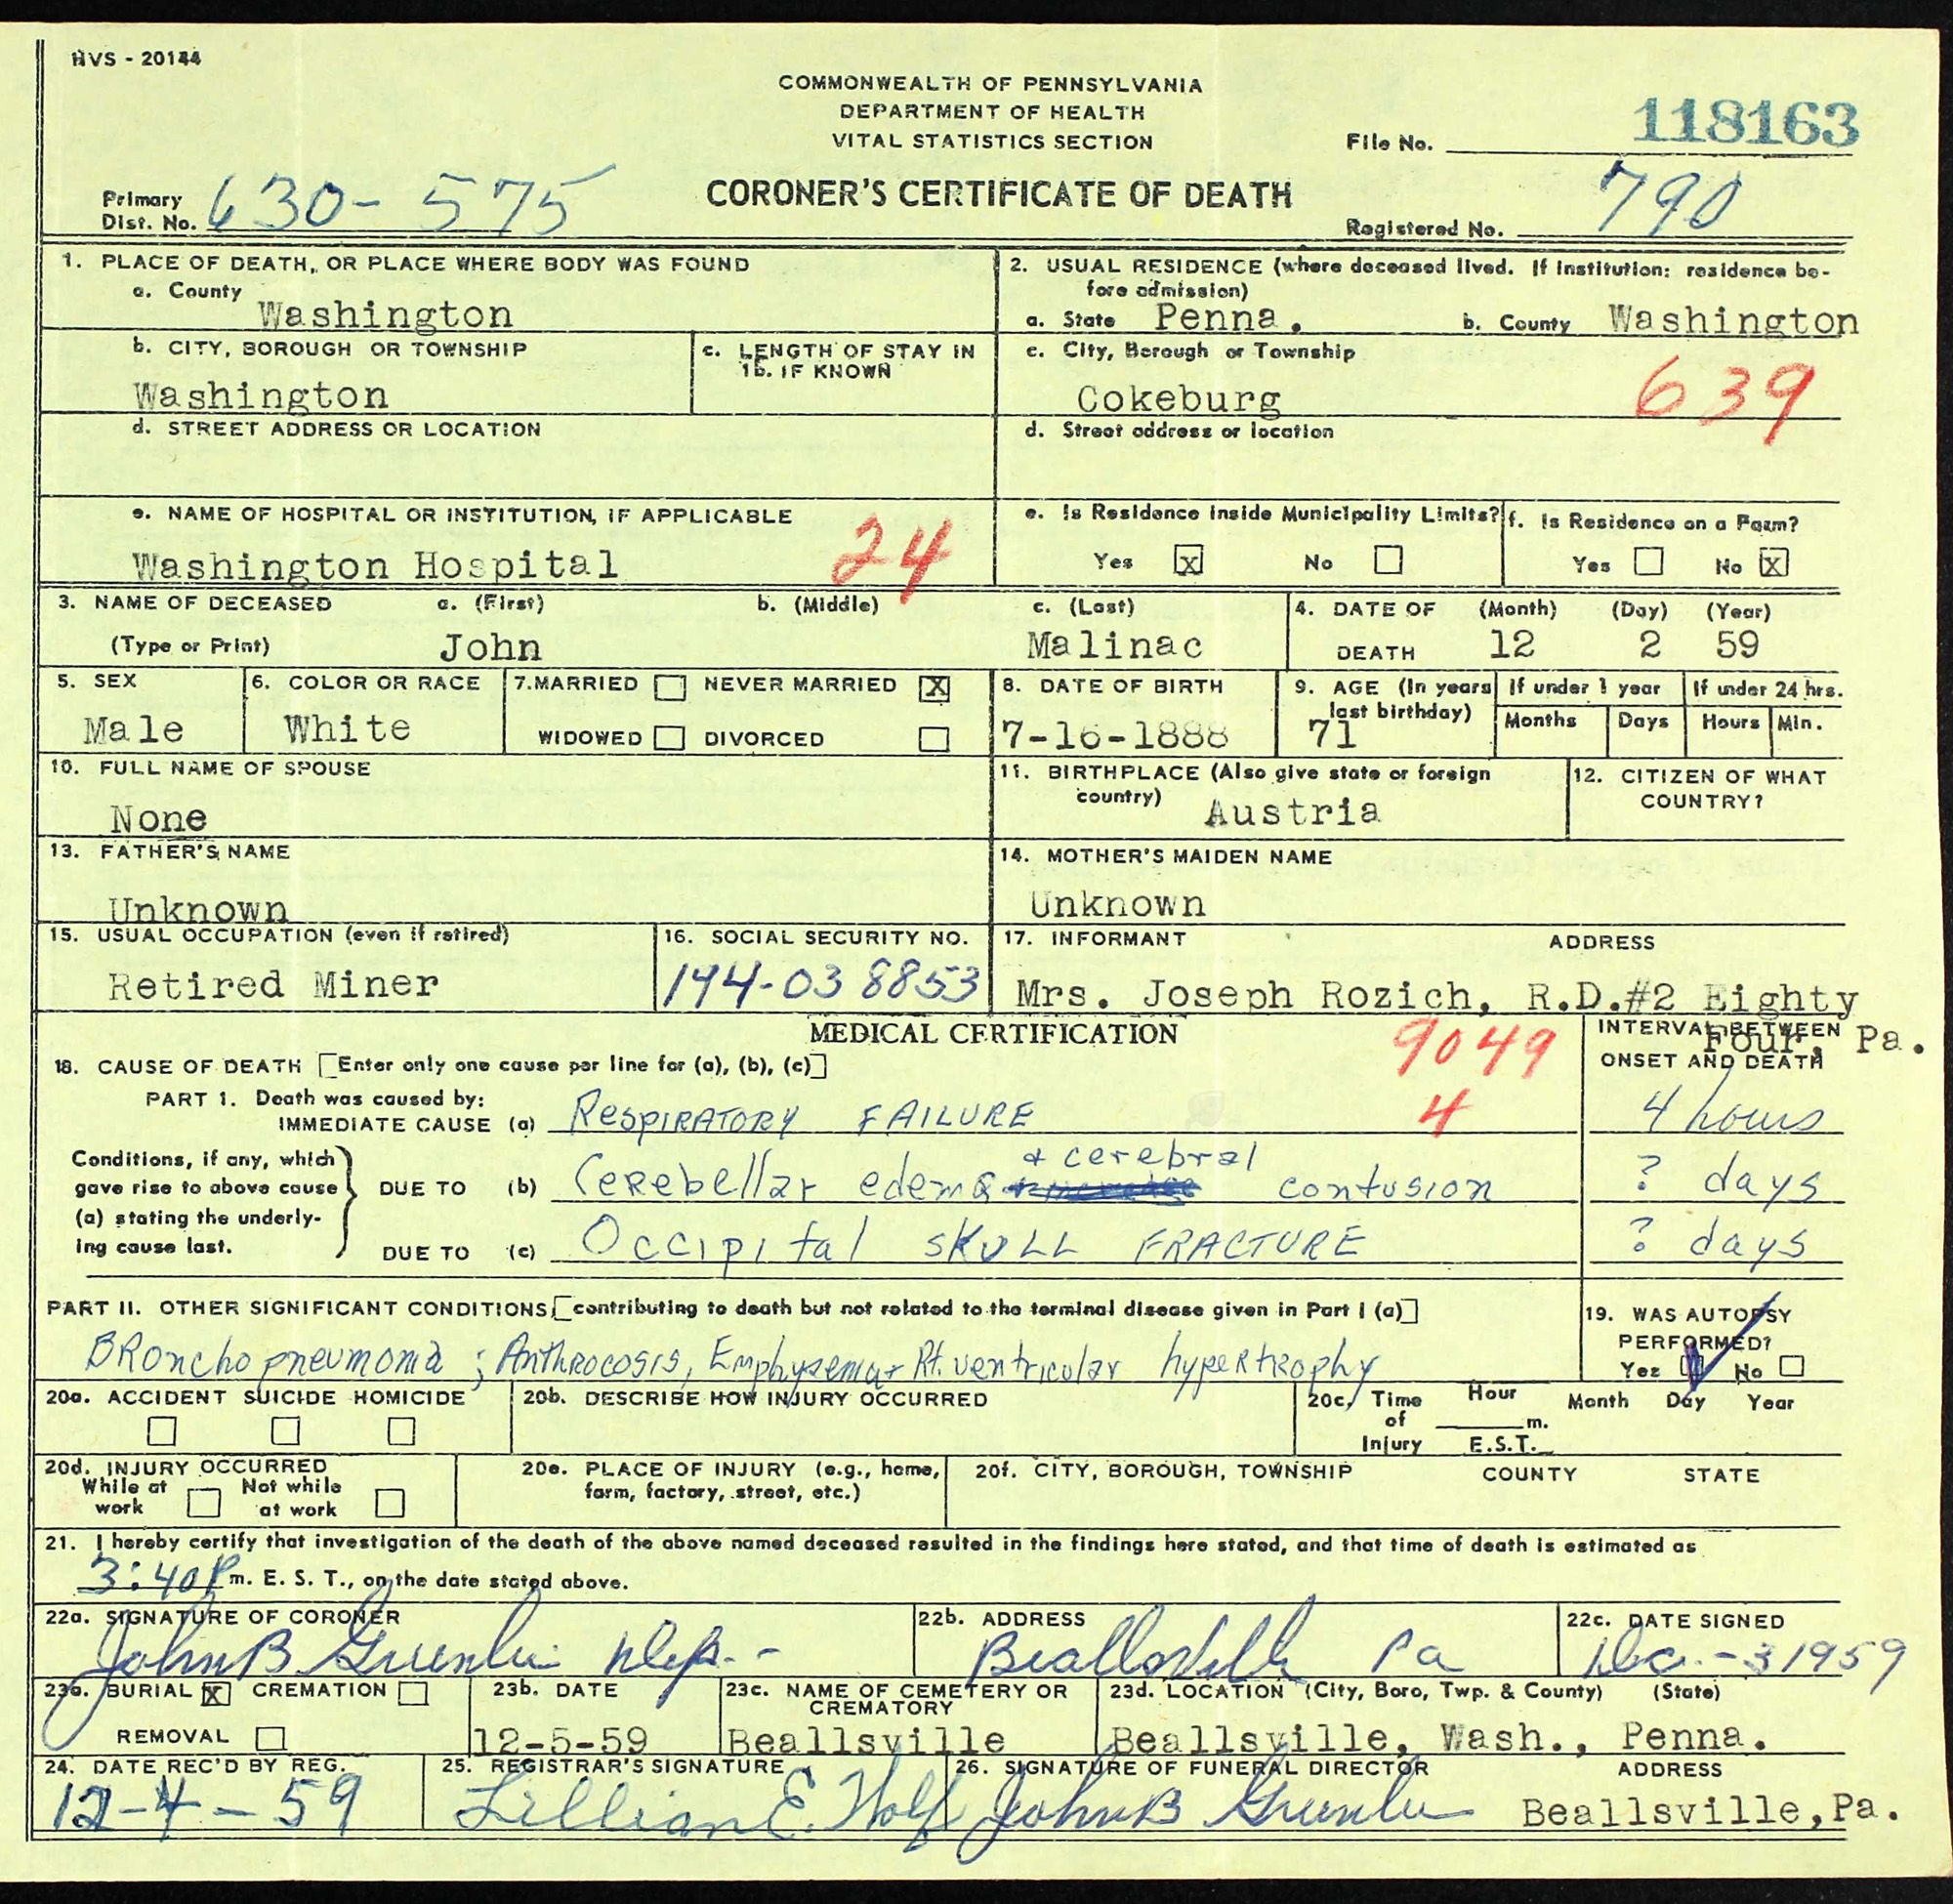 HVS - 20144
COMMONWEALTH OF PENNSYLVANIA
DEPARTMENT OF HEALTH
VITAL STATISTICS SECTION
File No. 118163
Primary
Dist. No. 630-575
CORONER'S CERTIFICATE OF DEATH
Registered No. 790
1. PLACE OF DEATH, OR PLACE WHERE BODY WAS FOUND
a. County
Washington
2. USUAL RESIDENCE (where deceased lived. If institution: residence be-
fore admission)
a. State Penna. b. County Washington
b. CITY, BOROUGH OR TOWNSHIP
Washington
c. LENGTH OF STAY IN
1b. IF KNOWN
c. City, Borough or Township
Cokeburg 639
d. STREET ADDRESS OR LOCATION
d. Street address or location
e. NAME OF HOSPITAL OR INSTITUTION, IF APPLICABLE
Washington Hospital 24
e. Is Residence inside Municipality Limits?
Yes X No
f. Is Residence on a Farm?
Yes No X
3. NAME OF DECEASED a. (First) b. (Middle) c. (Last)
(Type or Print) John Malinac
4. DATE OF (Month) (Day) (Year)
DEATH 12 2 59
5. SEX
Male
6. COLOR OR RACE
White
7. MARRIED NEVER MARRIED X
WIDOWED DIVORCED
8. DATE OF BIRTH
7-16-1888
9. AGE (In years
last birthday)
71
If under 1 year
Months Days
If under 24 hrs.
Hours Min.
10. FULL NAME OF SPOUSE
None
11. BIRTHPLACE (Also give state or foreign
country) Austria
12. CITIZEN OF WHAT
COUNTRY?
13. FATHER'S NAME
Unknown
14. MOTHER'S MAIDEN NAME
Unknown
15. USUAL OCCUPATION (even if retired)
Retired Miner
16. SOCIAL SECURITY NO.
194-03 8853
17. INFORMANT ADDRESS
Mrs. Joseph Rozich, R.D.#2 Eighty
Four, Pa.
MEDICAL CERTIFICATION
9049
4
INTERVAL BETWEEN
ONSET AND DEATH
18. CAUSE OF DEATH [Enter only one cause per line for (a), (b), (c)]
PART 1. Death was caused by:
IMMEDIATE CAUSE (a) RESPIRATORY FAILURE 4 hours
Conditions, if any, which
gave rise to above cause
(a) stating the underly-
ing cause last.
DUE TO (b) Cerebellar edema & cerebral contusion ? days
DUE TO (c) Occipital SKULL FRACTURE ? days
PART II. OTHER SIGNIFICANT CONDITIONS [contributing to death but not related to the terminal disease given in Part I (a)]
BRonchopneumonia ; Anthrocosis, Emphysema + Rt. ventricular hypertrophy
19. WAS AUTOPSY
PERFORMED?
Yes No
20a. ACCIDENT SUICIDE HOMICIDE
20b. DESCRIBE HOW INJURY OCCURRED
20c. Time
of
Injury
Hour
m.
E.S.T.
Month Day Year
20d. INJURY OCCURRED
While at
work
Not while
at work
20e. PLACE OF INJURY (e.g., home,
farm, factory, street, etc.)
20f. CITY, BOROUGH, TOWNSHIP COUNTY STATE
21. I hereby certify that investigation of the death of the above named deceased resulted in the findings here stated, and that time of death is estimated as
3:40 P m. E. S. T., on the date stated above.
22a. SIGNATURE OF CORONER
John B Greenlee Dep.
22b. ADDRESS
Beallsville Pa
22c. DATE SIGNED
Dec. - 3 1959
23a. BURIAL X CREMATION
REMOVAL
23b. DATE
12-5-59
23c. NAME OF CEMETERY OR
CREMATORY
Beallsville
23d. LOCATION (City, Boro, Twp. & County) (State)
Beallsville, Wash., Penna.
24. DATE REC'D BY REG.
12-4-59
25. REGISTRAR'S SIGNATURE
Lillian E. Wolf
26. SIGNATURE OF FUNERAL DIRECTOR ADDRESS
John B Greenlee Beallsville, Pa.